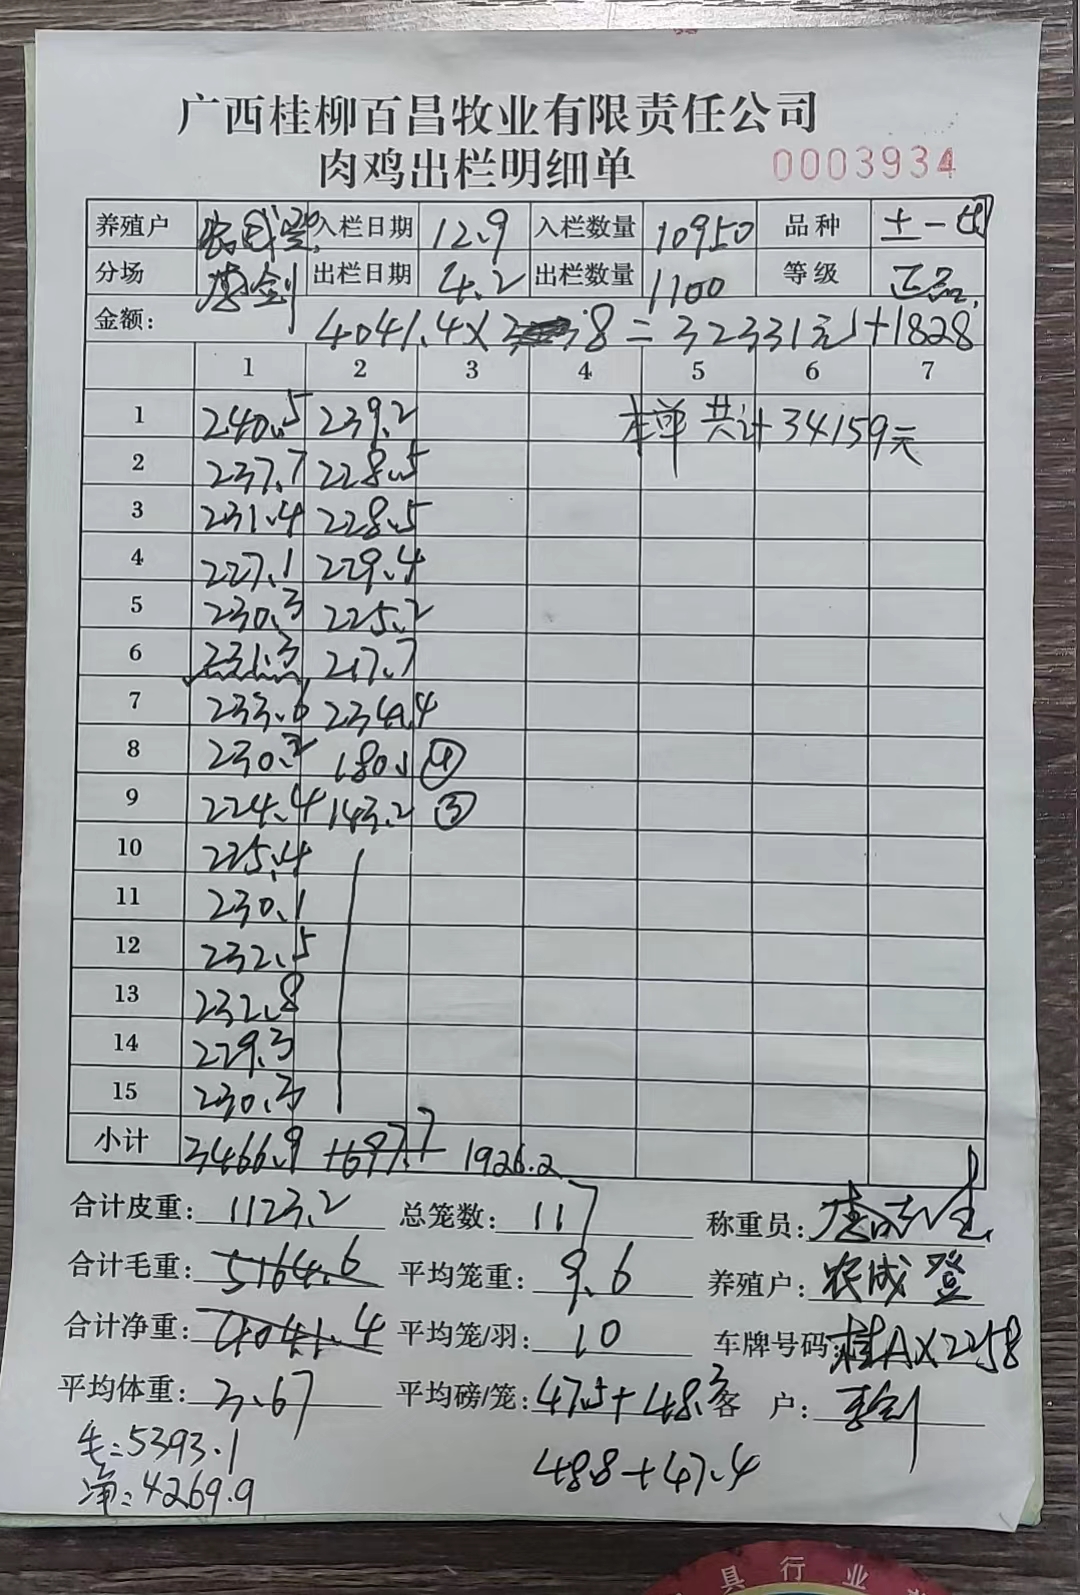 广西桂柳百昌牧业有限责任公司
肉鸡出栏明细单
0003934
养殖户 农成登 入栏日期 12.9 入栏数量 10950 品种
分场 出栏日期 4.2 出栏数量 1100 等级 正品
金额: 4041.4× 8=32331元+1828
1 2 3 4 5 6 7
1 240.5 239.2 本单共计34159元
2 237.7 228.5
3 231.4 228.5
4 227.1 229.4
5 230.3 225.2
6 231.3 217.7
7 233.6 234.4
8 230.2 180.1 ④
9 224.4 143.2 ③
10 225.4
11 230.1
12 232.5
13 232.8
14 229.3
15 230.3
小计 3466.9 1926.2
合计皮重: 1123.2 总笼数: 117 称重员:
合计毛重: 5164.6 平均笼重: 9.6 养殖户: 农成登
合计净重: 4041.4 平均笼/羽: 10 车牌号码: 桂AX2258
平均体重: 3.67 平均磅/笼: 47.5+48.3 客户:
毛:5393.1 48.8+47.4
净:4269.9
具行业